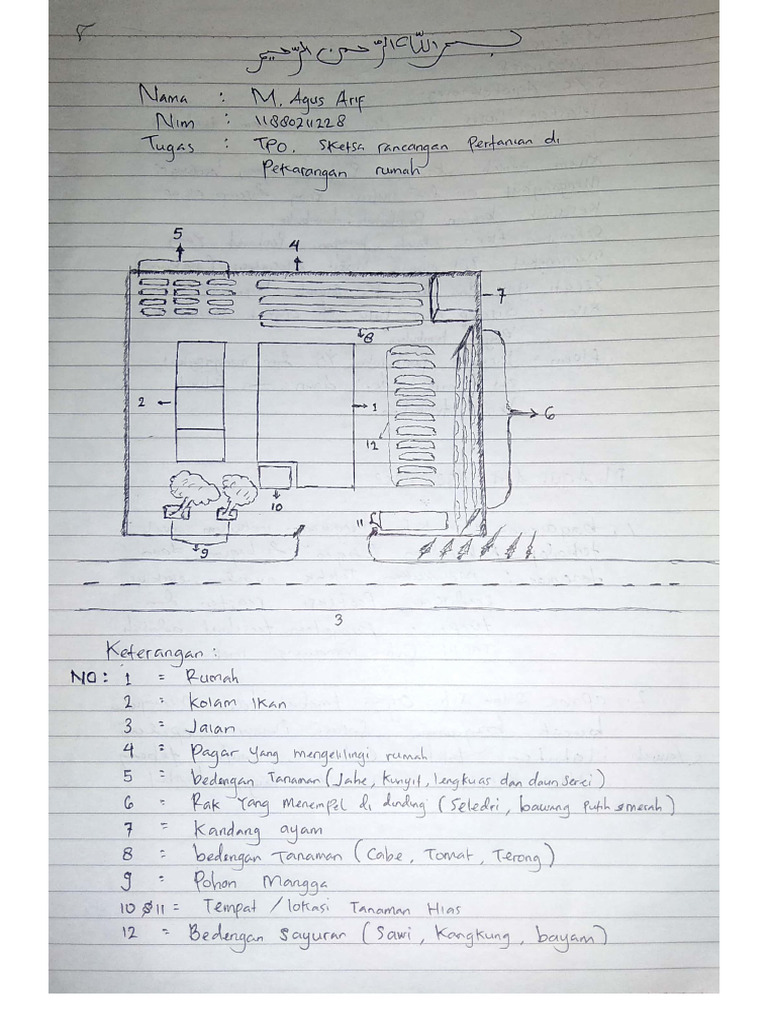 بسم الله الرحمن الرحيم
Nama : M. Agus Arif
Nim : 11880211228
Tugas : TPO. Sketsa rancangan Pertanian di
Pekarangan rumah
5
4
7
8
2
1
6
12
10
11
9
3
Keterangan :
NO : 1 = Rumah
2 = Kolam Ikan
3 = Jalan
4 = Pagar Yang mengelilingi rumah
5 = bedengan Tanaman (Jahe, Kunyit, lengkuas dan daun Serei)
6 = Rak Yang Menempel di dinding (Seledri, bawang Putih & merah)
7 = Kandang ayam
8 = bedengan Tanaman (Cabe, Tomat, Terong)
9 = Pohon Mangga
10 & 11 = Tempat / lokasi Tanaman Hias
12 = Bedengan Sayuran (Sawi, Kangkung, bayam)